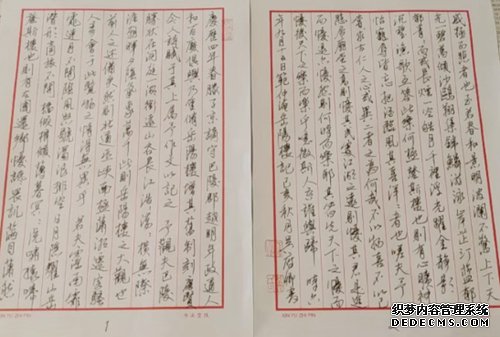 慶曆四年春滕子京謫守巴陵郡越明年政通人
和百廢俱興乃重修岳陽樓增其舊制刻唐賢
今人詩賦于其上屬予作文以記之 予觀夫巴陵
勝狀在洞庭一湖銜遠山吞長江浩浩湯湯橫無際
涯朝暉夕陰氣象萬千此則岳陽樓之大觀也
前人之述備矣然則北通巫峽南極瀟湘遷客騷
人多會于此覽物之情得無異乎 若夫霪雨霏
霏連月不開陰風怒號濁浪排空日星隱耀山岳
潛形商旅不行檣傾楫摧薄暮冥冥虎嘯猿啼
登斯樓也則有去國懷鄉憂讒畏譏滿目蕭然
1
感極而悲者也 至若春和景明波瀾不驚上下天
光一碧萬頃沙鷗翔集錦鱗游泳岸芷汀蘭郁
郁青青而或長煙一空皓月千里浮光躍金靜影
沉璧漁歌互答此樂何極登斯樓也則有心曠神
怡寵辱皆忘把酒臨風其喜洋洋者也嗟夫予
嘗求古仁人之心或異二者之為何哉不以物喜不以己
悲居廟堂之高則憂其民處江湖之遠則憂其君是進
亦憂退亦憂然則何時而樂耶其必曰先天下之憂而
憂後天下之樂而樂乎噫微斯人吾誰與歸 時六
年九月十五日範仲淹岳陽樓記己亥秋月
本文素材来源于网络